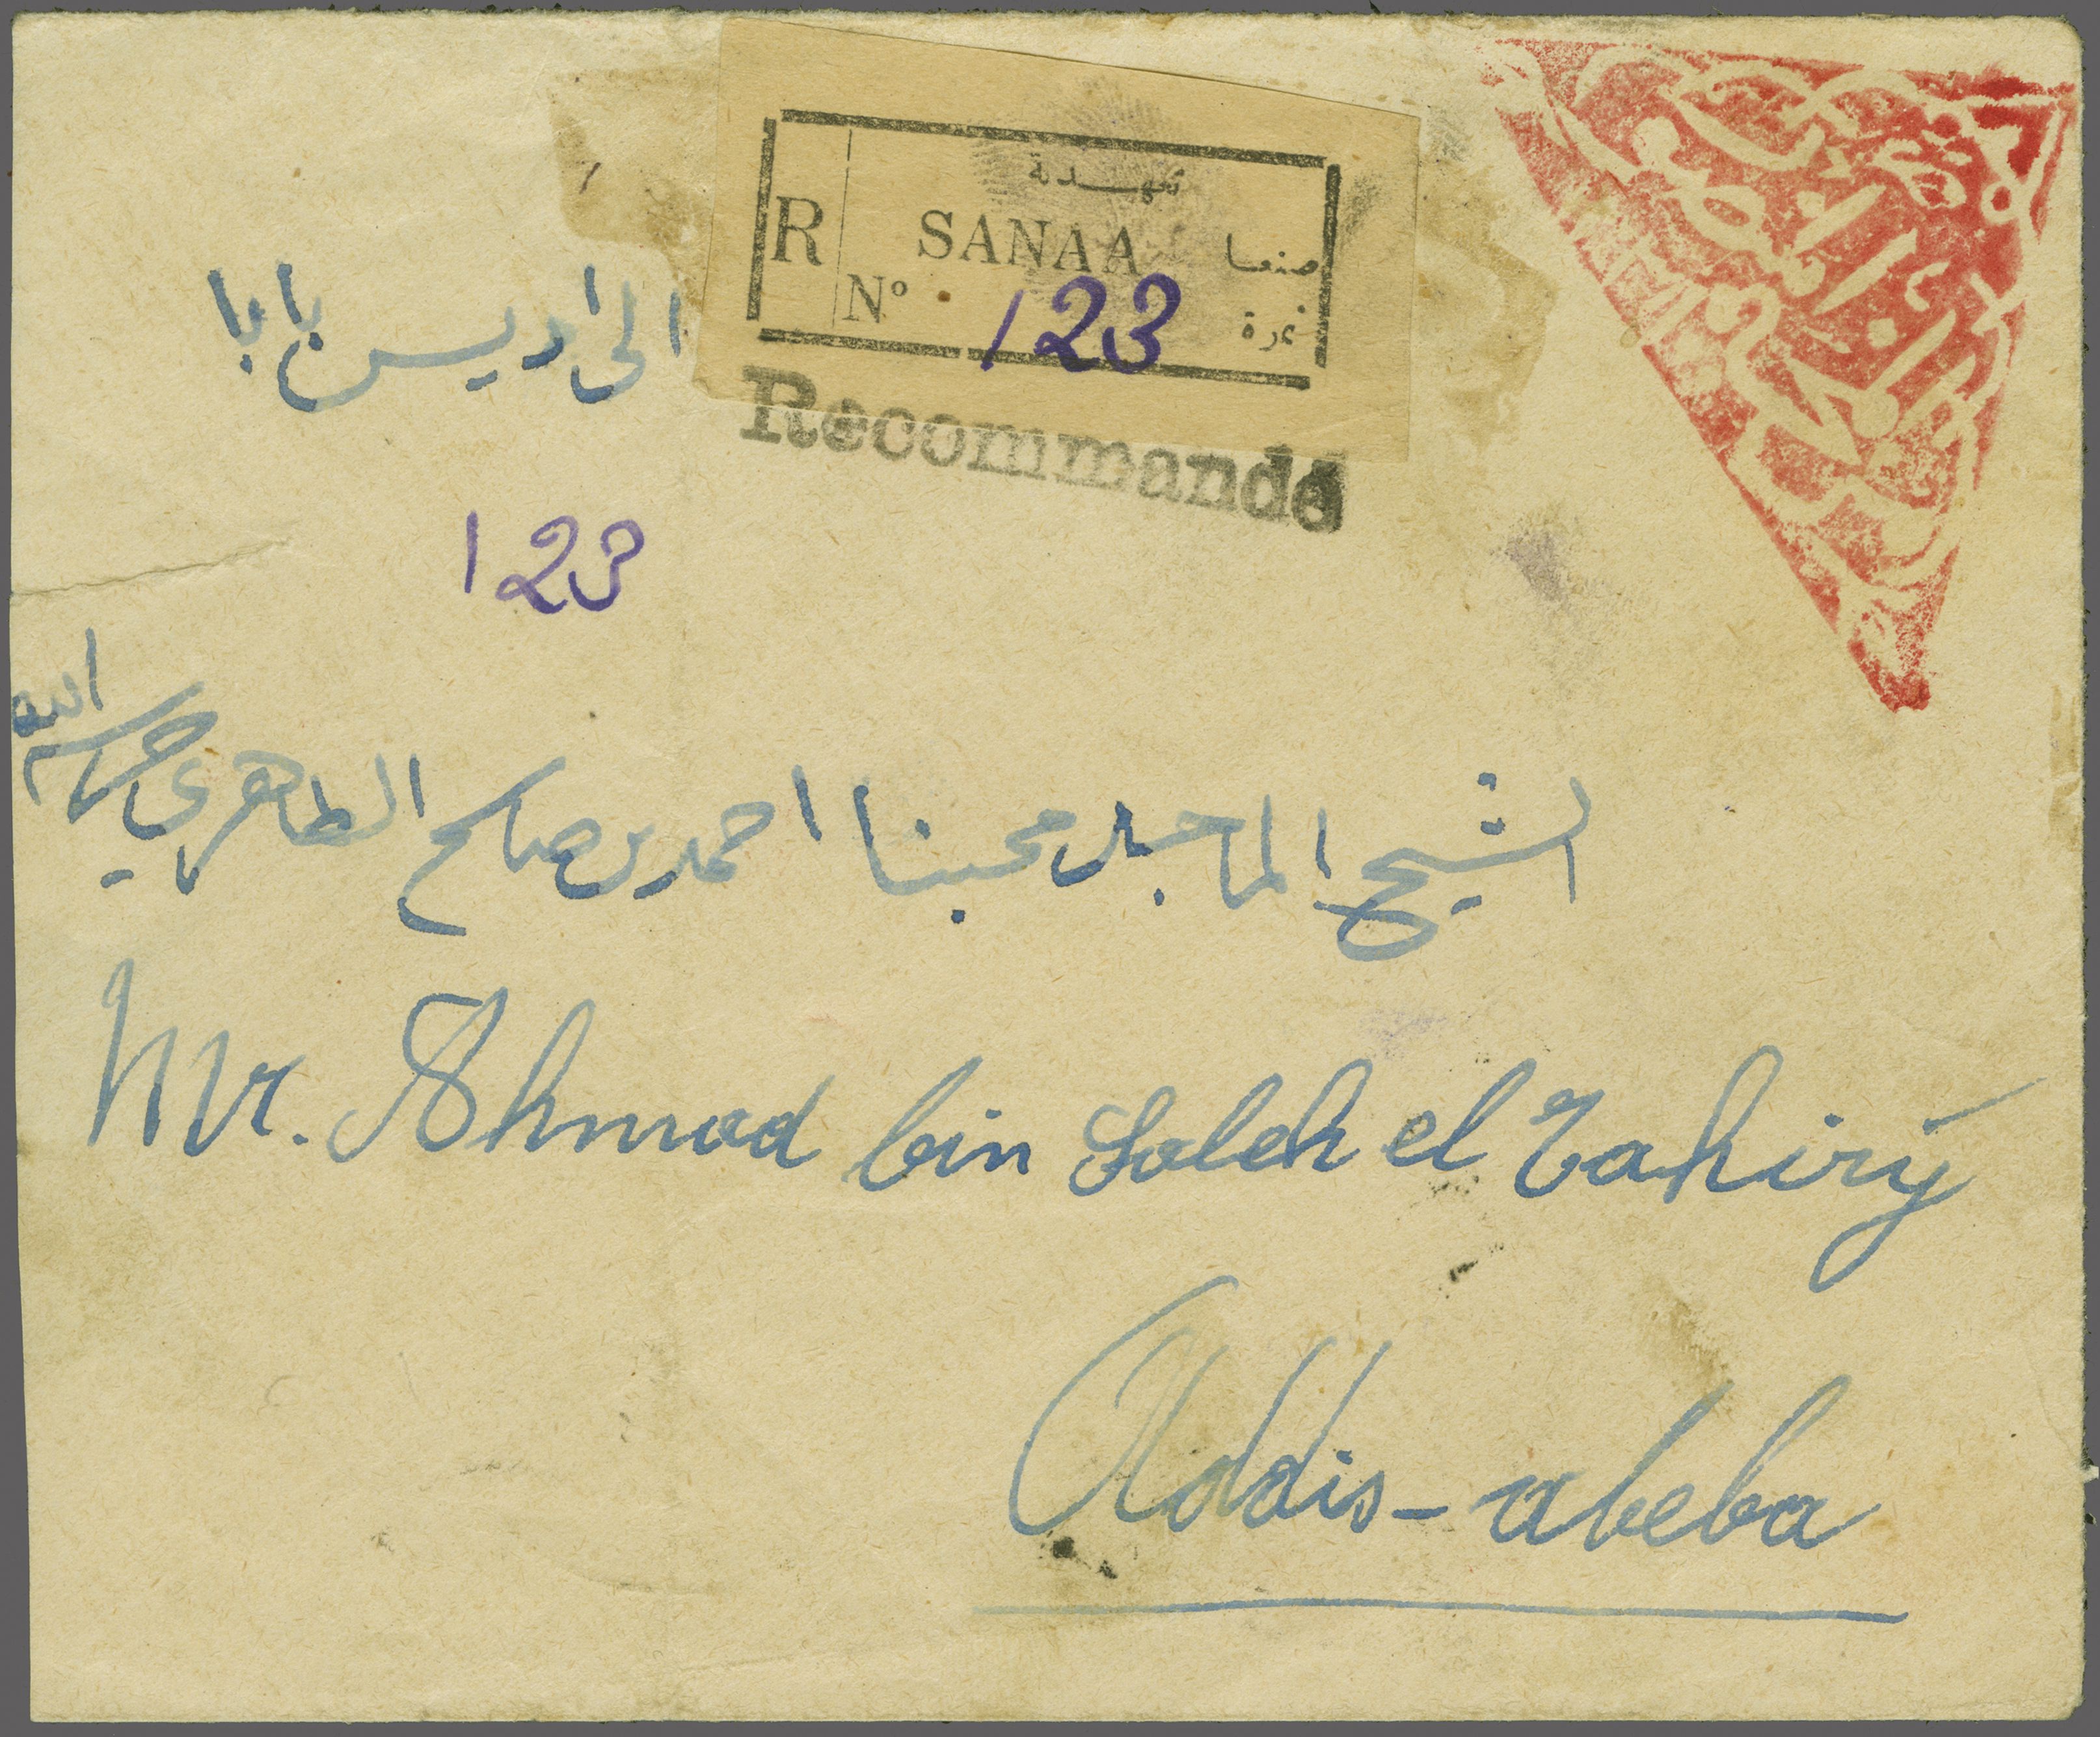 تعهدة
R SANAA صنعا
Nº 123 نمرة
Recommandé
الى اديس بابا
123
الشيخ الماجد محبنا احمد بن صالح الطاهري حرسه الله
Mr. Ahmad bin Saleh el Tahiry
Addis-abeba